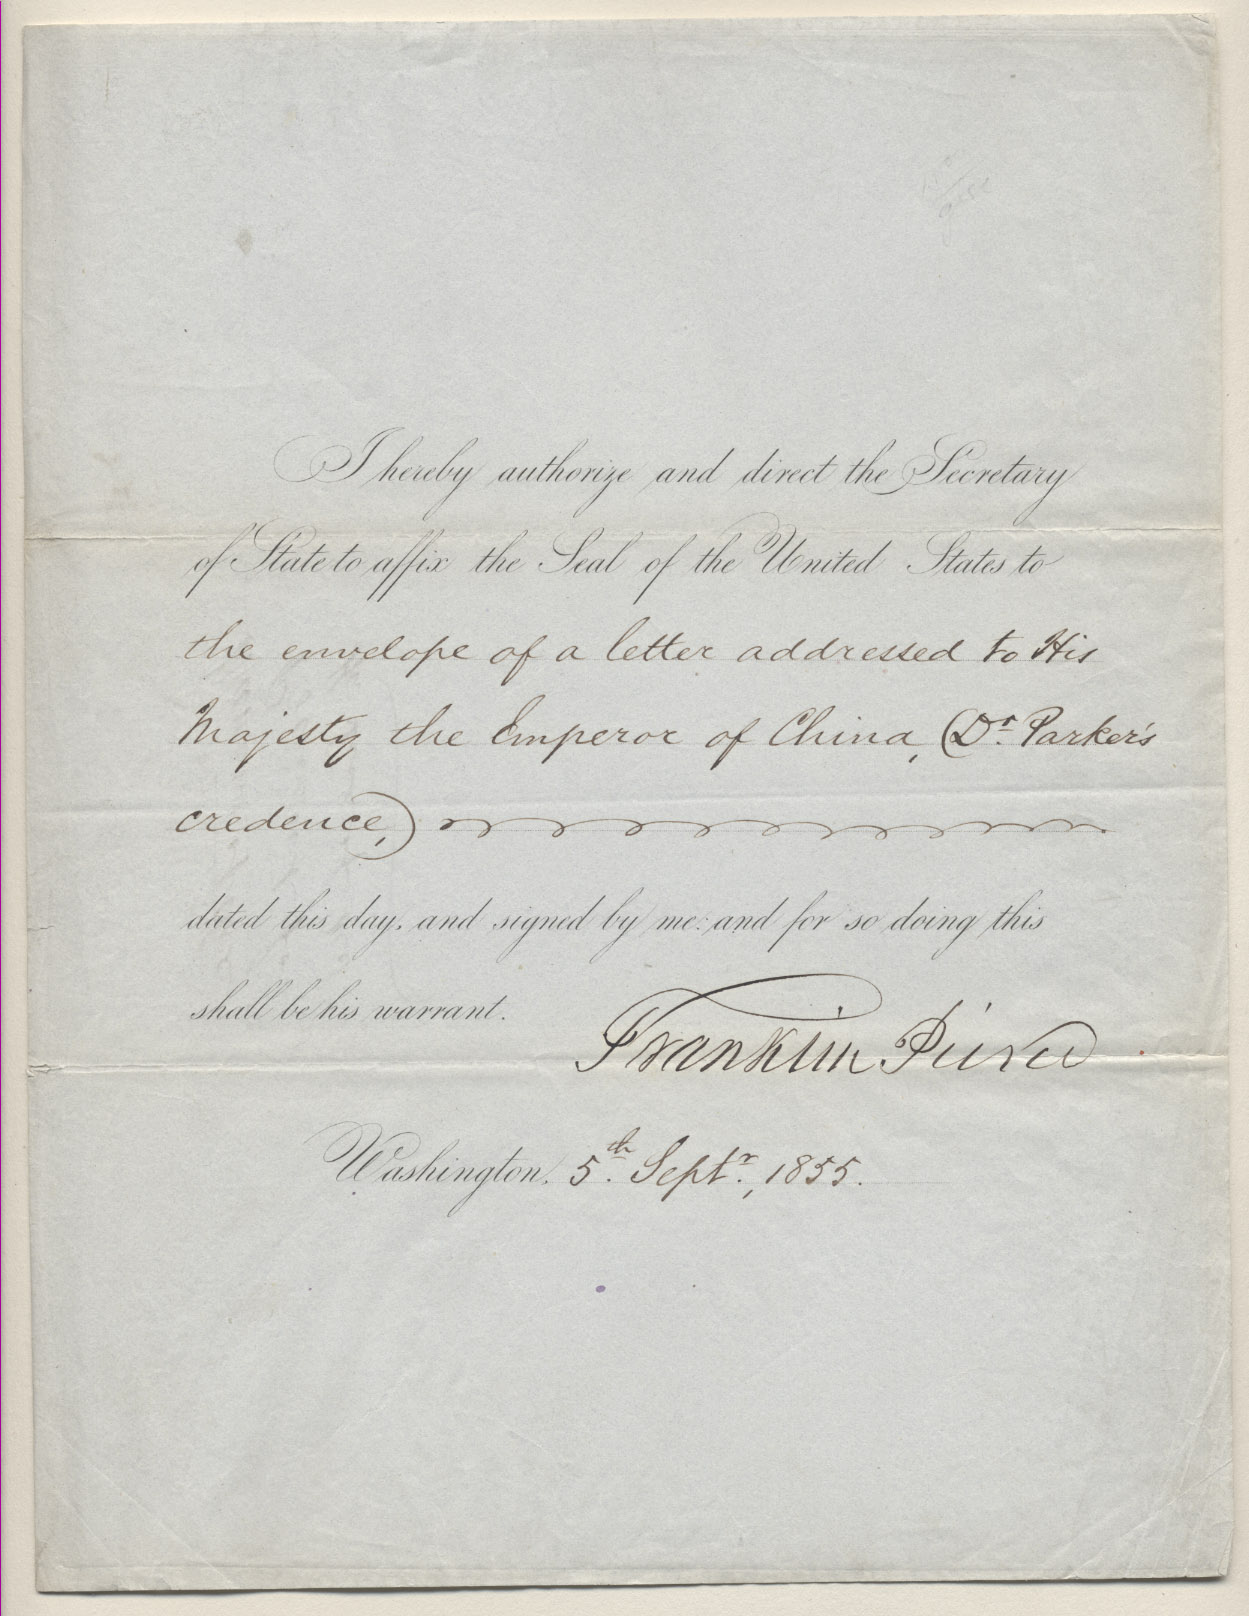 I hereby authorize and direct the Secretary
of State to affix the Seal of the United States to
the envelope of a letter addressed to His
Majesty the Emperor of China, (Dr. Parker's
credence,)
dated this day, and signed by me: and for so doing this
shall be his warrant.
Franklin Pierce
Washington, 5th. Septr., 1855.